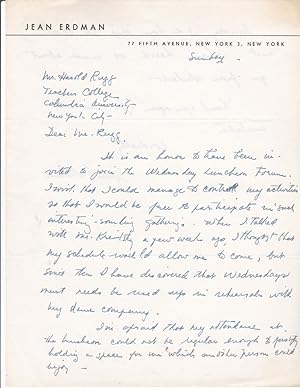 JEAN ERDMAN
77 FIFTH AVENUE, NEW YORK 3, NEW YORK
Sunday –
Mr. Harold Rugg
Teachers College
Columbia University –
New York City –
Dear Mr. Rugg.
It is an honor to have been in-
vited to join the Wednesday Luncheon Forum.
I wish that I could manage to control my activities
so that I would be free to participate in such
interesting-sounding gatherings. When I talked
with Mr. a few weeks ago I thought that
my schedule would allow me to come, but
since then I have discovered that Wednesdays
must needs be used up in rehearsals with
my dance company.
I'm afraid that my attendance at
the luncheon could not be regular enough to justify
holding a space for me which another person could
enjoy –